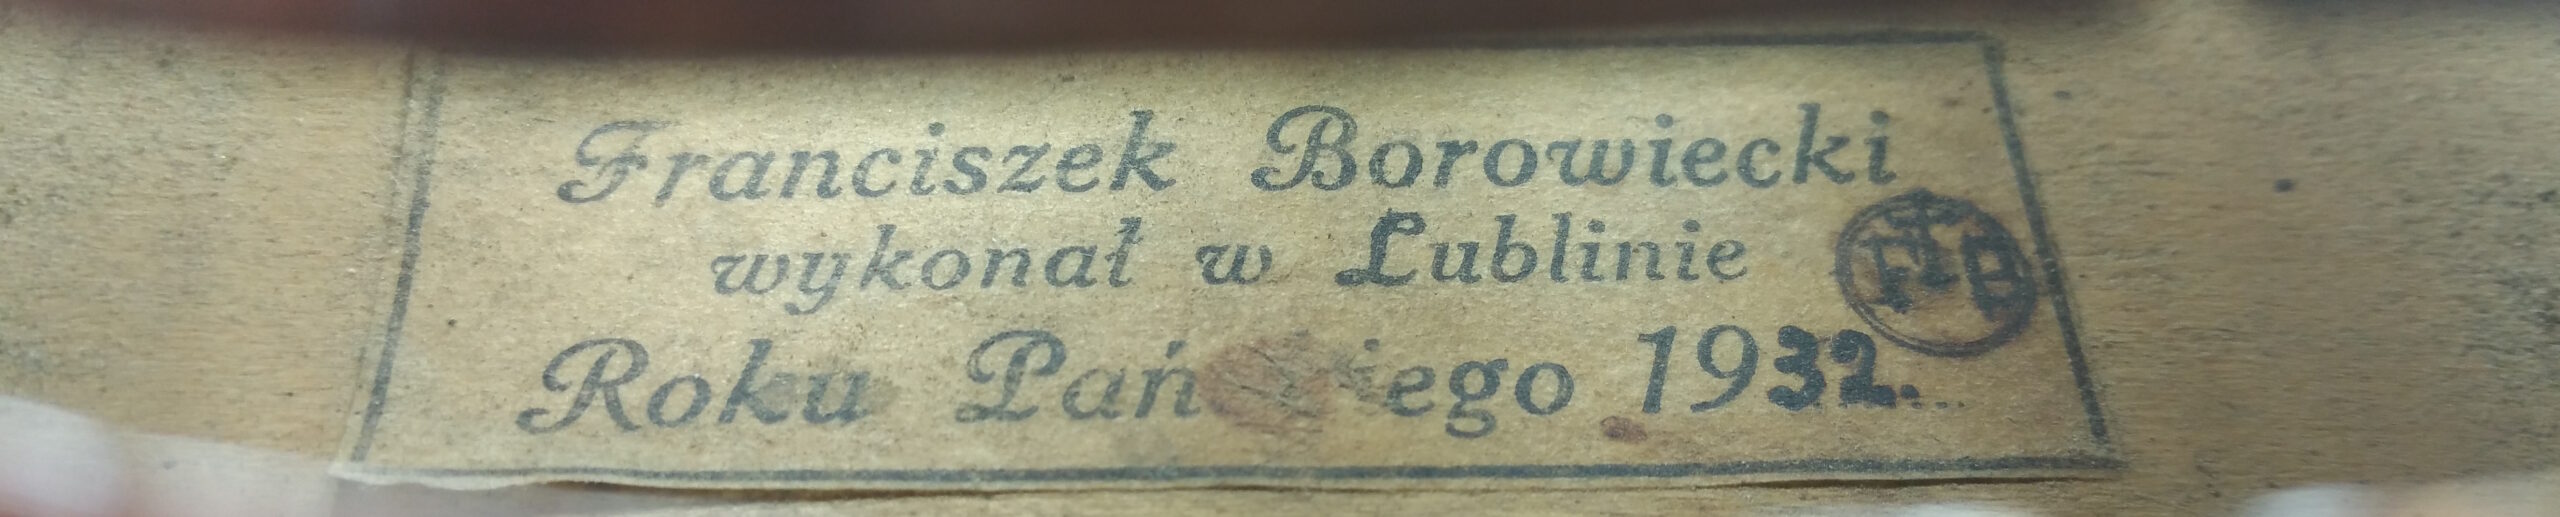 Franciszek Borowiecki
wykonał w Lublinie
FB
Roku Pańskiego 1932.